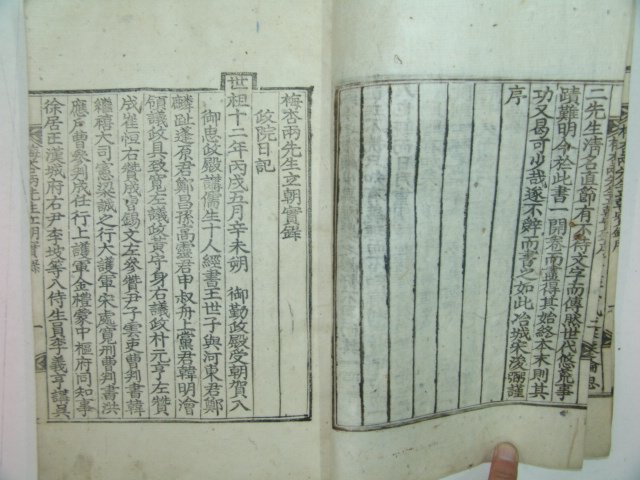 二先生清名直節有不待文字而傳然世代悠荒事
蹟難明今於此書一開卷而盡得其始終本末則其
功又曷可少哉遂不辭而書之如此冶城宋浚弼謹
序
梅杏兩先生立朝實錄
政院日記
世祖十二年丙戌五月辛未朔 御勤政殿受朝賀入
御思政殿講儒生十人經書王世子與河東君鄭
麟趾蓬原君鄭昌孫高靈君申叔舟上黨君韓明澮
領議政具致寬左議政黃守身右議政朴元亨左贊
成崔恒右贊成曹錫文左參贊尹子雲吏曹判書韓
繼禧大司憲梁誠之行大護軍宋處寬刑曹判書洪
應戶曹參判成任行上護軍金禮蒙中樞府同知事
徐居正漢城府右尹李坡等入侍生員李義亨講吳
梅杏兩先生立朝實錄
一